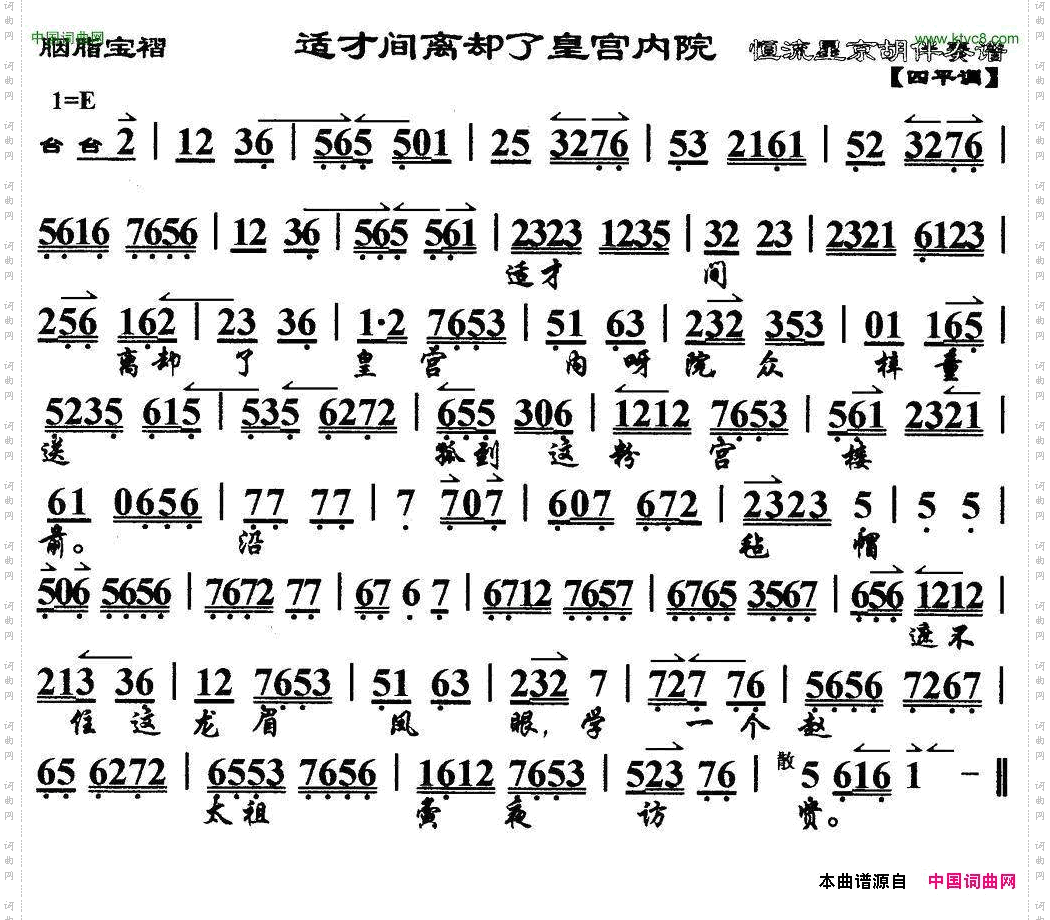 中国词曲网
www.ktvc8.com
胭脂宝褶 适才间离却了皇宫内院 恒流星京胡伴奏谱
【四平调】
1=E
台 台 2 | 12 36 | 565 501 | 25 3276 | 53 2161 | 52 3276 |
5616 7656 | 12 36 | 565 561 | 2323 1235 | 32 23 | 2321 6123 |
适才 间
256 162 | 23 36 | 1·2 7653 | 51 63 | 232 353 | 01 165 |
离却 了 皇 宫 内 呀 院 众 梓 童
5235 615 | 535 6272 | 655 306 | 1212 7653 | 561 2321 |
送 孤到 这 粉 宫 楼
61 0656 | 77 77 | 7 707 | 607 672 | 2323 5 | 5 5 |
前。 沿 毡 帽
506 5656 | 7672 77 | 67 6 7 | 6712 7657 | 6765 3567 | 656 1212 |
遮不
213 36 | 12 7653 | 51 63 | 232 7 | 727 76 | 5656 7267 |
住 这 龙 眉 凤 眼，学 一 个 赵
65 6272 | 6553 7656 | 1612 7653 | 523 76 | 散 5 616 1 – ‖
太 祖 夤 夜 访 贤。
本曲谱源自 中国词曲网